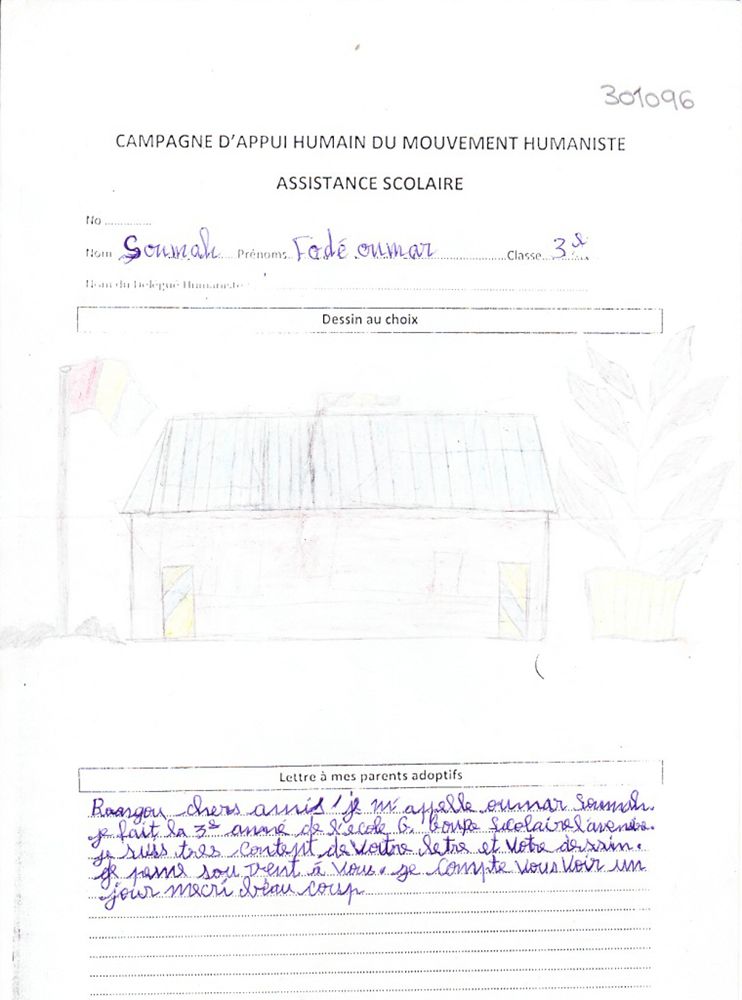 301096
CAMPAGNE D'APPUI HUMAIN DU MOUVEMENT HUMANISTE
ASSISTANCE SCOLAIRE
No ................
Nom Soumah Prénoms Fodé oumar Classe 3e
Nom du Délégué Humaniste :
Dessin au choix
Lettre à mes parents adoptifs
chers amis! je m'appelle oumar Soumah.
je fait la 3e anné de l'école G. Coupe Scolaire l'avenir.
je suis tres content de Votre letre et Votre dessin.
je pense sou vent à Vous. je Compte Vous Voir un
jour mecri beau coup